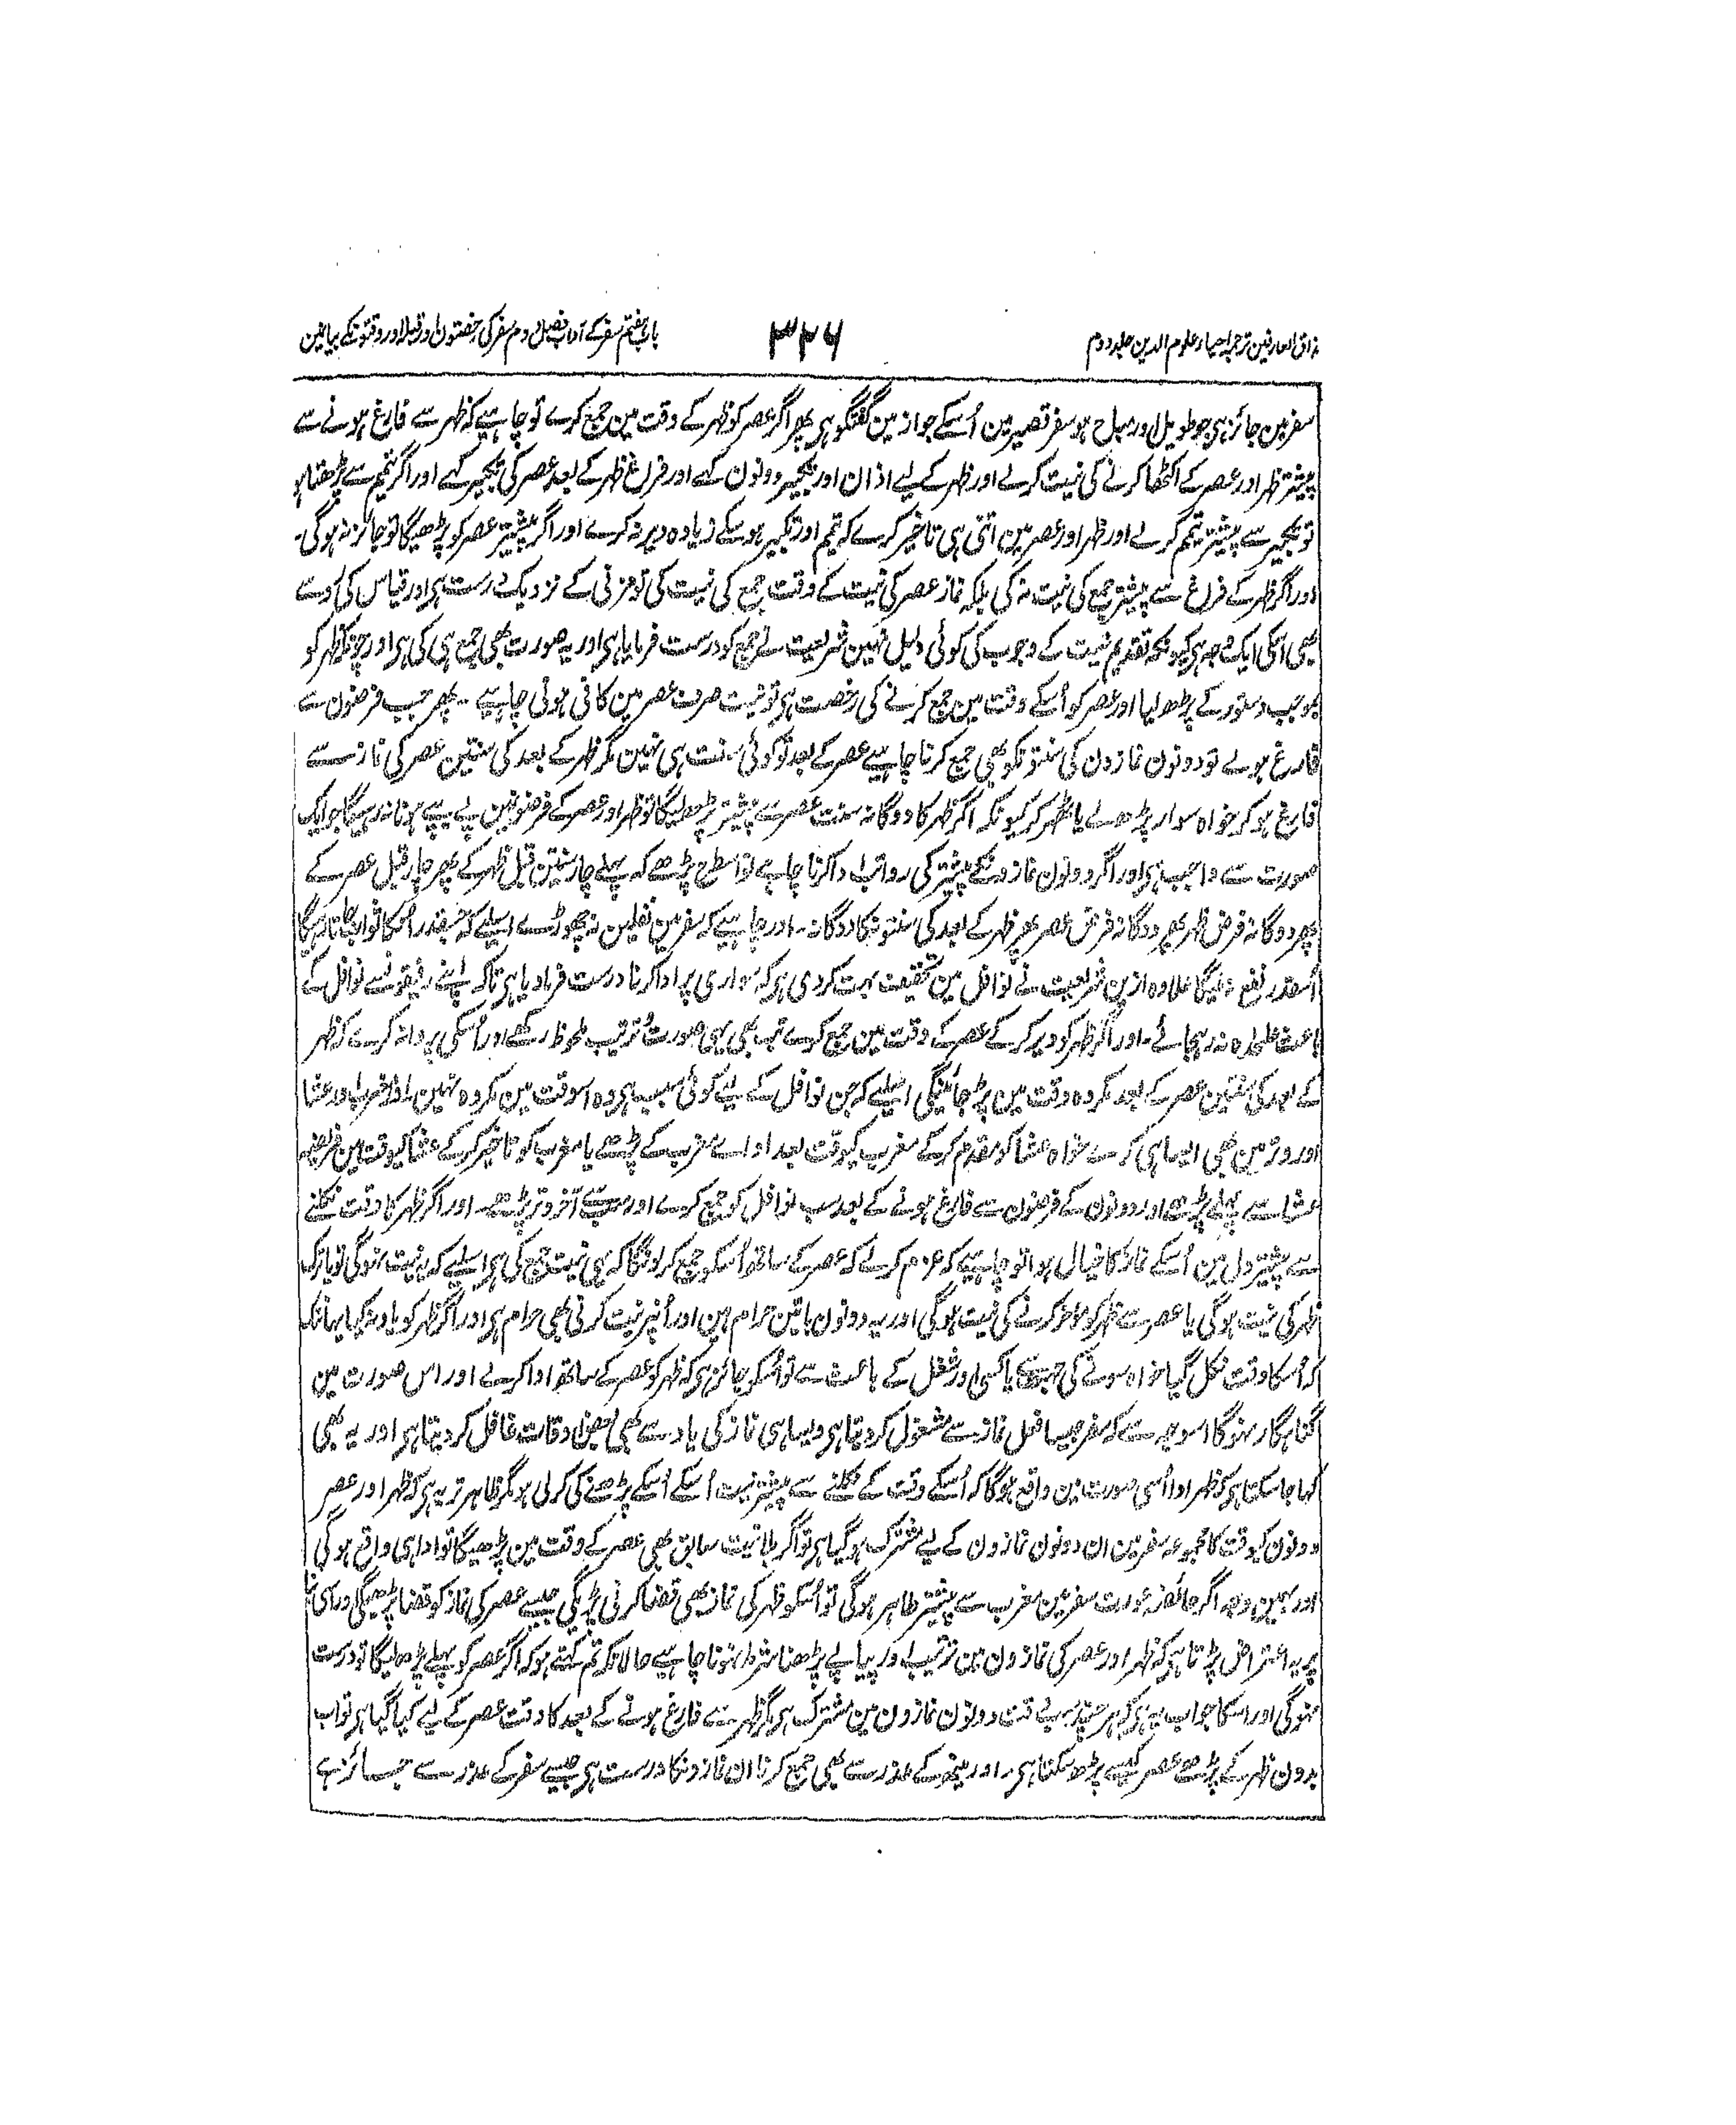 مذاق العارفین ترجمہ احیاء علوم الدین جلد دوم
۳۲۶
باب ہفتم سفر کے آداب فصل دوم سفر کی رخصتون اور قبلہ اور وقتونکے بیانمین
سفر مین جائز ہی جو طویل اور مباح ہو سفر قصیر مین اُسکے جواز مین گفتگو ہی پھر اگر عصر کو ظہر کے وقت مین جمع کرے تو چاہیے کہ ظہر سے فارغ ہونے سے
پیشتر ظہر اور عصر کے اکٹھا کرنے کی نیت کرلے اور ظہر کے لیے اذان اور تکبیر دونون کہے اور فراغ ظہر کے بعد عصر کی تکبیر کہے اور اگر تیمم سے پڑھتا ہو
تو تکبیر سے پیشتر تیمم کرلے اور ظہر اور عصر مین اتنی ہی تاخیر کرے کہ تیمم اور تکبیر ہو سکے زیادہ دیر نہ کرے اور اگر پیشتر عصر کو پڑھیگا تو جائز نہ ہوگی۔
اور اگر ظہر کے فراغ سے پیشتر جمع کی نیت نہ کی بلکہ نماز عصر کی نیت کے وقت جمع کی نیت کی تو مزنی کے نزدیک درست ہی اور قیاس کی رو سے
بھی اسکی ایک وجہ ہی کیونکہ تقدیم نیت کے وجوب کی کوئی دلیل نہین شریعت نے جمع کو درست فرمایا ہی اور یہ صورت بھی جمع ہی کی ہی اور چونکہ ظہر کو
بموجب دستور کے پڑھ لیا اور عصر کو اُسکے وقت مین جمع کرنے کی رخصت ہی تو نیت صرف عصر مین کافی ہونی چاہیے - پھر جب فرضون سے
فارغ ہولے تو دونون نمازون کی سنتونکو بھی جمع کرنا چاہیے عصر کے بعد تو کوئی سنت ہی نہین مگر ظہر کے بعد کی سنتین عصر کی نماز سے
فارغ ہو کر خواہ سوار پڑھ لے یا ٹھہر کر کیونکہ اگر ظہر کا دوگانہ سنت عصر سے پیشتر پڑھ لیگا تو ظہر اور عصر کے فرضونمین پے بہ پے ہونا نہ رہیگا جو ایک
صورت سے واجب ہی اور اگر دونون نمازونکے پیشتر کی رواتب ادا کرنا چاہے تو اسطرح پڑھے کہ پہلے چار سنتین قبل ظہر کے پھر چار قبل عصر کے
پھر دوگانہ فرض ظہر پھر دوگانہ فرض عصر پھر ظہر کے بعد کی سنتونکا دوگانہ - اور چاہیے کہ سفر مین نفلین نہ چھوڑے اسلیے کہ جسقدر اُسکا ثواب جاتا رہیگا
اُسقدر نفع نہ ملیگا علاوہ ازین شریعت نے نوافل مین تخفیف بہت کردی ہی کہ سواری پر ادا کرنا درست فرما دیا ہی تاکہ اپنے رفیقونسے نوافل کے
باعث علحدہ نہ رہجائے - اور اگر ظہر کو دیر کرکے عصر کے وقت مین جمع کرے تب بھی یہی صورت و ترتیب ملحوظ رکھے اور اُسکی پروا نہ کرے کہ ظہر
کے بعد کی سنتین عصر کے بعد مکروہ وقت مین پڑ جائینگی اسلیے کہ جن نوافل کے لیے کوئی سبب ہی وہ اسوقت مین مکروہ نہین اور مغرب اور عشا
اور وتر مین بھی ایسا ہی کرے خواہ عشا کو مقدم کرکے مغرب کیوقت بعد ادا سے مغرب کے پڑھے یا مغرب کو تاخیر کرکے عشا کیوقت مین فریضہ
عشا سے پہلے پڑھے اور دونون کے فرضون سے فارغ ہونے کے بعد سب نوافل کو جمع کرے اور سب سے آخر وتر پڑھے - اور اگر ظہر کا وقت نکلنے
سے پیشتر دل مین اُسکے نماز کا خیال ہو تو چاہیے کہ عزم کرلے کہ عصر کے ساتھ اُسکو جمع کرلونگا کہ یہی نیت جمع کی ہی اسلیے کہ یہ نیت نہوگی تو یا ترک
ظہر کی نیت ہوگی یا عصر سے ظہر کو مؤخر کرنے کی نیت ہوگی اور یہ دونون باتین حرام ہین اور اُنپر نیت کرنی بھی حرام ہی اور اگر ظہر کو یاد نہ کیا یہانتک
کہ اُسکا وقت نکل گیا خواہ سونے کی جہت سے یا کسی اور شغل کے باعث سے تو اُسکو جائز ہی کہ ظہر کو عصر کے ساتھ ادا کرلے اور اس صورت مین
گناہگار نہوگا اسوجہ سے کہ سفر جیسا فعل نماز سے مشغول کردیتا ہی ویسا ہی نماز کی یاد سے بھی بعض اوقات غافل کردیتا ہی اور یہ بھی
کہا جا سکتا ہی کہ ظہر ادا اُسی صورت مین واقع ہوگا کہ اُسکے وقت کے نکلنے سے پیشتر نیت اُسکے پڑھنے کی کرلی ہو مگر ظاہر تر یہ ہی کہ ظہر اور عصر
دونون کیوقت کا مجموعہ سفر مین ان دونون نمازون کے لیے مشترک ہوگیا ہی تو اگر بلانیت سابق بھی عصر کے وقت مین پڑھیگا تو ادا ہی واقع ہوگی
اور بہمین وجہ اگر حائضہ عورت سفر مین مغرب سے پیشتر طاہر ہوگی تو اُسکو ظہر کی نماز بھی قضا کرنی پڑیگی جیسے عصر کی نماز کو قضا پڑھیگی اور اسی بنا
پر یہ اعتراض پڑتا ہی کہ ظہر اور عصر کی نمازون مین ترتیب اور پیاپے پڑھنا شرط نہونا چاہیے حالانکہ تم کہتے ہو کہ اگر عصر کو پہلے پڑھ لیگا تو درست
نہوگی اور اسکا جواب یہ ہی کہ ہر چند یہ وقت دونون نمازون مین مشترک ہی مگر ظہر سے فارغ ہونے کے بعد کا وقت عصر کے لیے کیا گیا ہی تو اب
بدون ظہر کے پڑھے عصر کیسے پڑھ سکتا ہی - اور مینھ کے عذر سے بھی جمع کرنا ان نمازونکا درست ہی جیسے سفر کے عذر سے جائز ہے